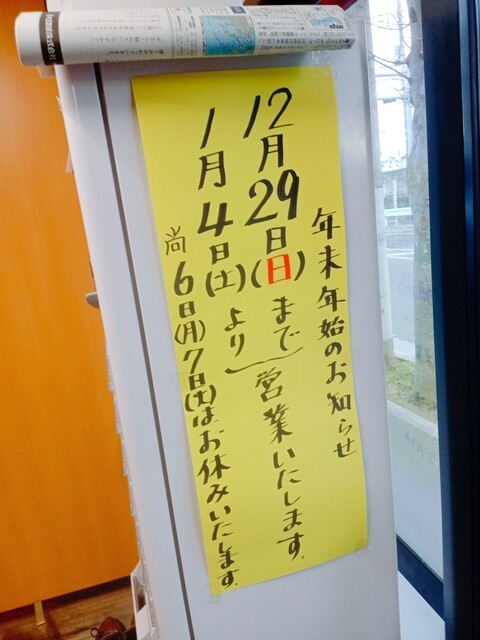 年末年始のお知らせ
12月29日(日)まで
1月4日(土)より
営業いたします.
尚6日(月)7日(土)はお休みいたします.